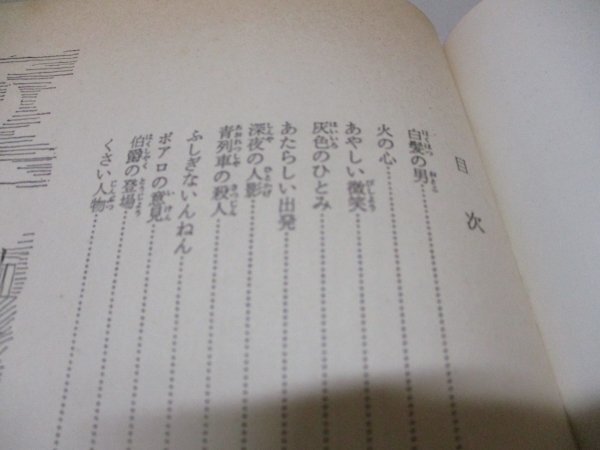 目次
白髪の男
火の心
あやしい微笑
灰色のひとみ
あたらしい出発
深夜の人影
青列車の殺人
ふしぎないんねん
ポアロの意見
伯爵の登場
くさい人物